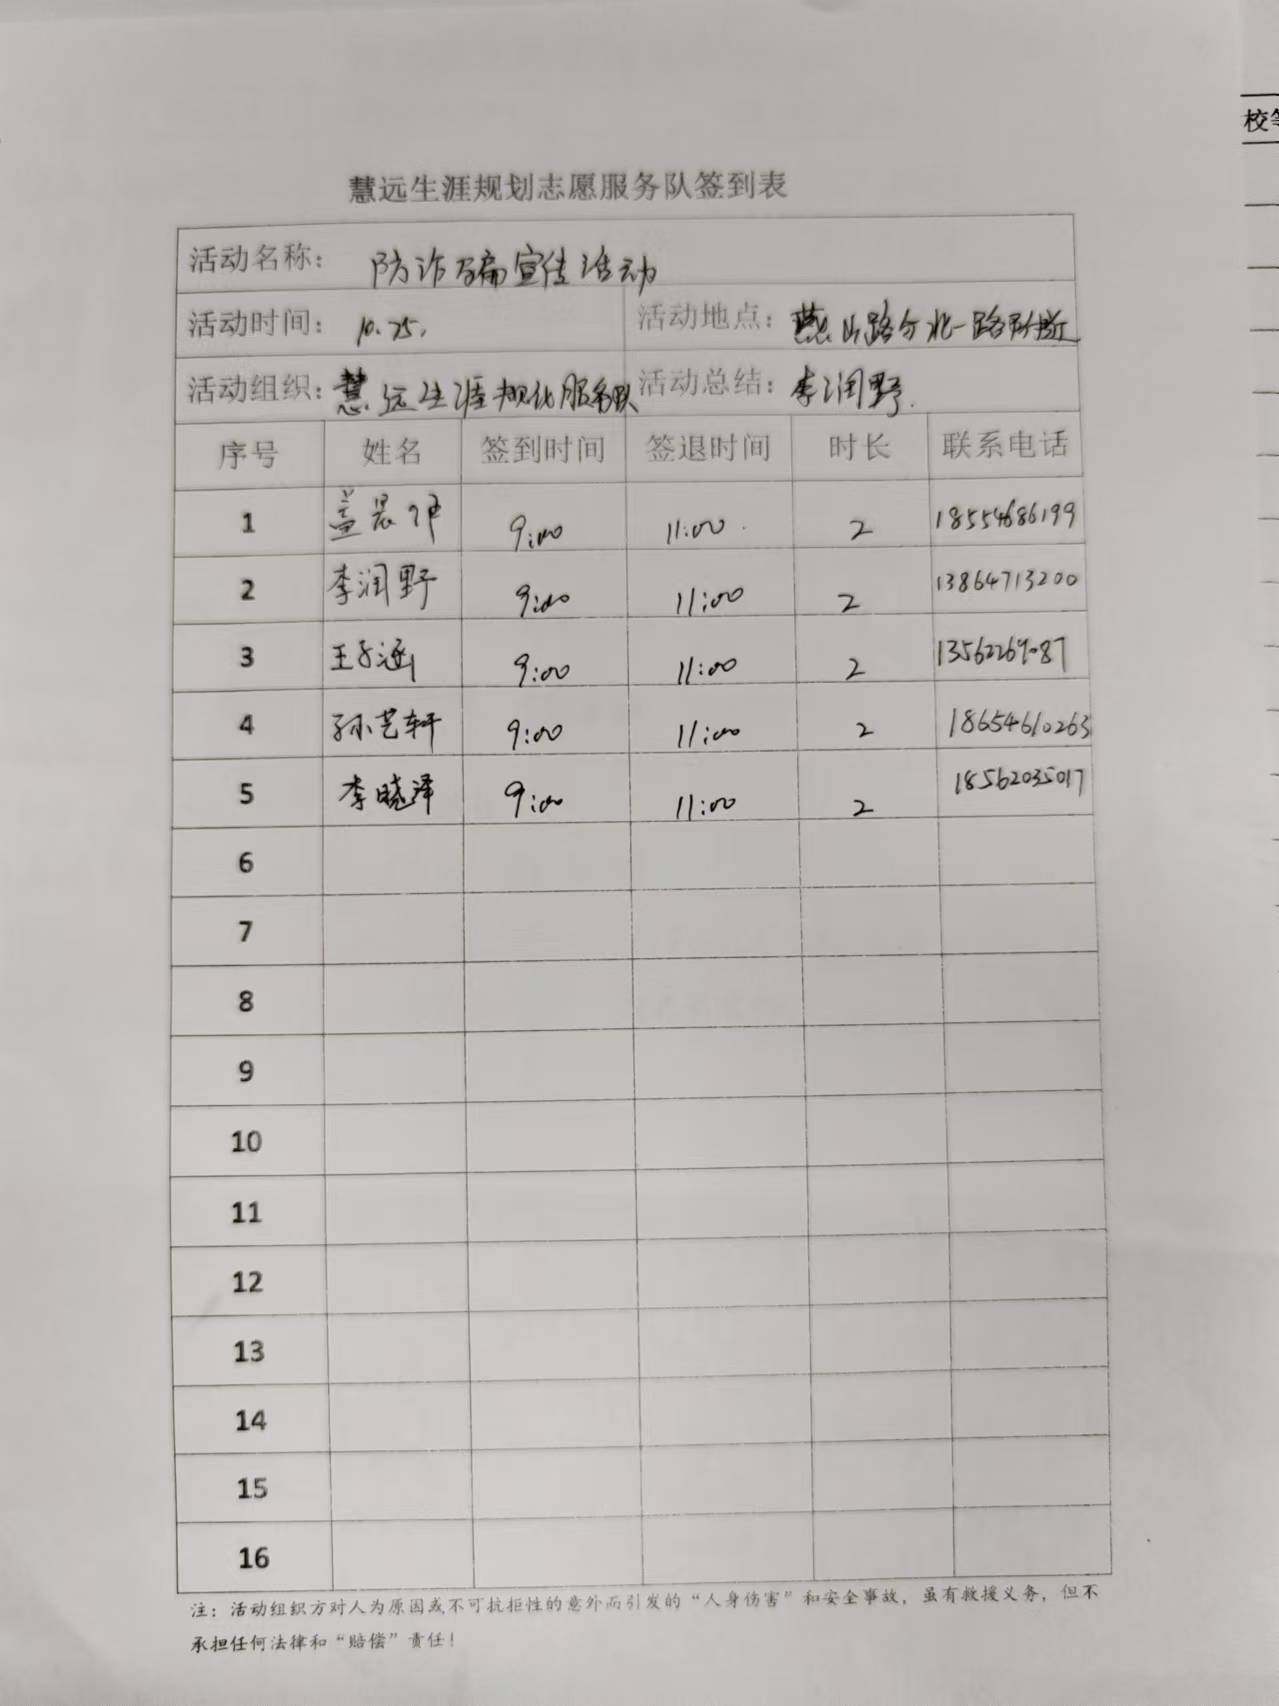 校等
慧远生涯规划志愿服务队签到表
活动名称： 防诈骗宣传活动
活动时间： 10.25. 活动地点： 燕山路与北一路附近
活动组织： 慧远生涯规化服务队 活动总结： 李润野.
序号 姓名 签到时间 签退时间 时长 联系电话
1 盖晨 9:00 11:00 2 18554686199
2 李润野 9:00 11:00 2 13864713200
3 王子涵 9:00 11:00 2 13562269087
4 孙艺轩 9:00 11:00 2 18654610263
5 李晓泽 9:00 11:00 2 18562035017
6
7
8
9
10
11
12
13
14
15
16
注：活动组织方对人为原因或不可抗拒性的意外而引发的“人身伤害”和安全事故，虽有救援义务，但不
承担任何法律和“赔偿”责任！